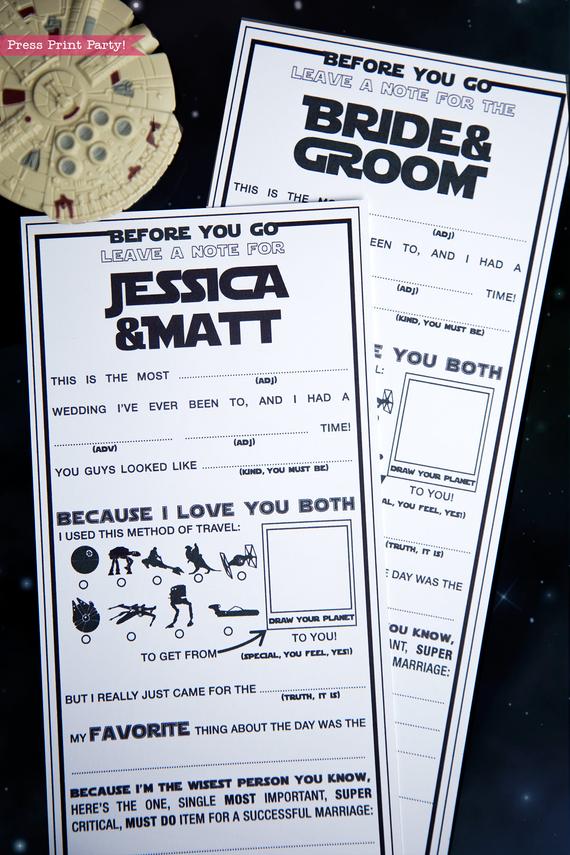 Press Print Party!
BEFORE YOU GO
LEAVE A NOTE FOR THE
BRIDE&
GROOM
THIS IS THE
(ADJ)
EEN TO, AND I HAD A
(ADJ) TIME!
(KIND, YOU MUST BE)
YOU BOTH
DRAW YOUR PLANET
TO YOU!
AL, YOU FEEL, YES!)
(TRUTH, IT IS)
DAY WAS THE
OU KNOW,
ANT, SUPER
MARRIAGE:
BEFORE YOU GO
LEAVE A NOTE FOR
JESSICA
&MATT
THIS IS THE MOST
(ADJ)
WEDDING I'VE EVER BEEN TO, AND I HAD A
TIME!
(ADV) (ADJ)
YOU GUYS LOOKED LIKE
(KIND, YOU MUST BE)
BECAUSE I LOVE YOU BOTH
I USED THIS METHOD OF TRAVEL:
DRAW YOUR PLANET
TO GET FROM TO YOU!
(SPECIAL, YOU FEEL, YES!)
BUT I REALLY JUST CAME FOR THE
(TRUTH, IT IS)
MY FAVORITE THING ABOUT THE DAY WAS THE
BECAUSE I'M THE WISEST PERSON YOU KNOW,
HERE'S THE ONE, SINGLE MOST IMPORTANT, SUPER
CRITICAL, MUST DO ITEM FOR A SUCCESSFUL MARRIAGE: